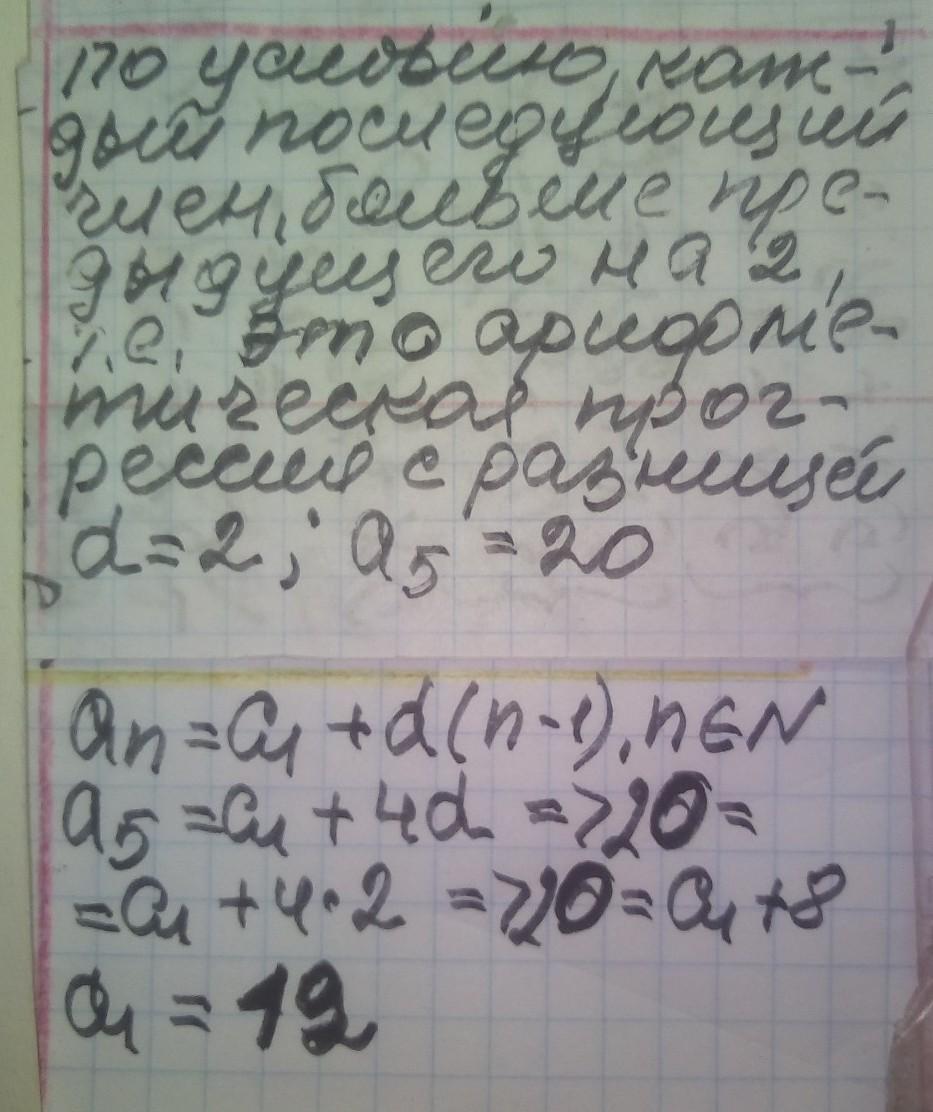 по условию, каж-
дый последующий
член, больше пре-
дыдущего на 2,
т.е. это арифме-
тическая прог-
рессия с разницей
d=2; a₅ =20
an =a₁ +d(n-1), n∈N
a₅ =a₁ +4d =>20=
=a₁ +4·2 =>20=a₁ +8
a₁ = 12